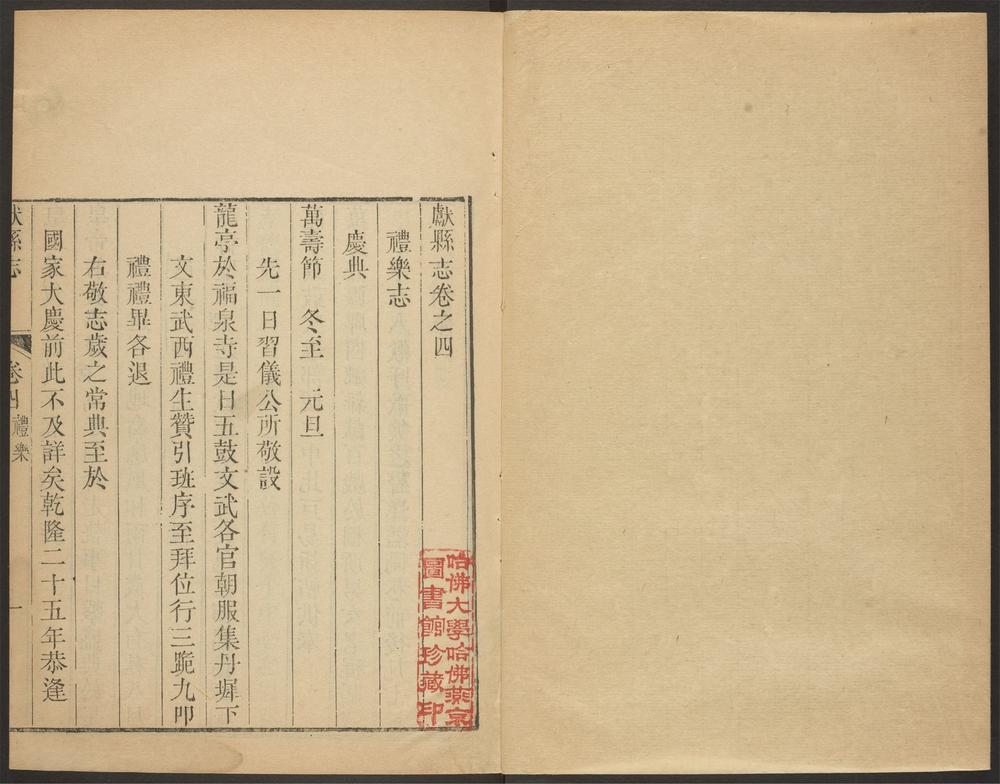 獻縣志卷之四
禮樂志
慶典
萬壽節 冬至 元旦
先一日習儀公所敬設
龍亭於福泉寺是日五鼓文武各官朝服集丹墀下
文東武西禮生贊引班序至拜位行三跪九叩
禮禮畢各退
右敬志歲之常典至於
國家大慶前此不及詳矣乾隆二十五年恭逢
獻縣志 卷四 禮樂 一
哈佛大學哈佛燕京
圖書館珍藏印